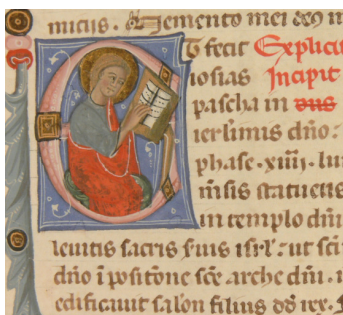 micijs. Memento mei de9 m
t fecit Explicit
iosias Incipit
pascha in ons
ierlimis dño.
phase. xiiij. lun
msis statuens
in templo dñi
leuitis sacris suis isrl. ut sci
dño i positōne sce arche dñi.
edificauit salon filius dd rex.